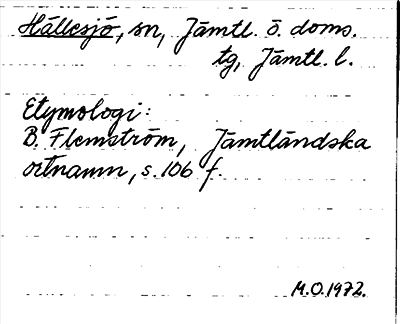 Hällesjö, sn, Jämtl. ö. doms.
tg, Jämtl. l.
Etymologi:
B. Flemström, Jämtländska
ortnamn, s. 106 f.
M.O. 1972.